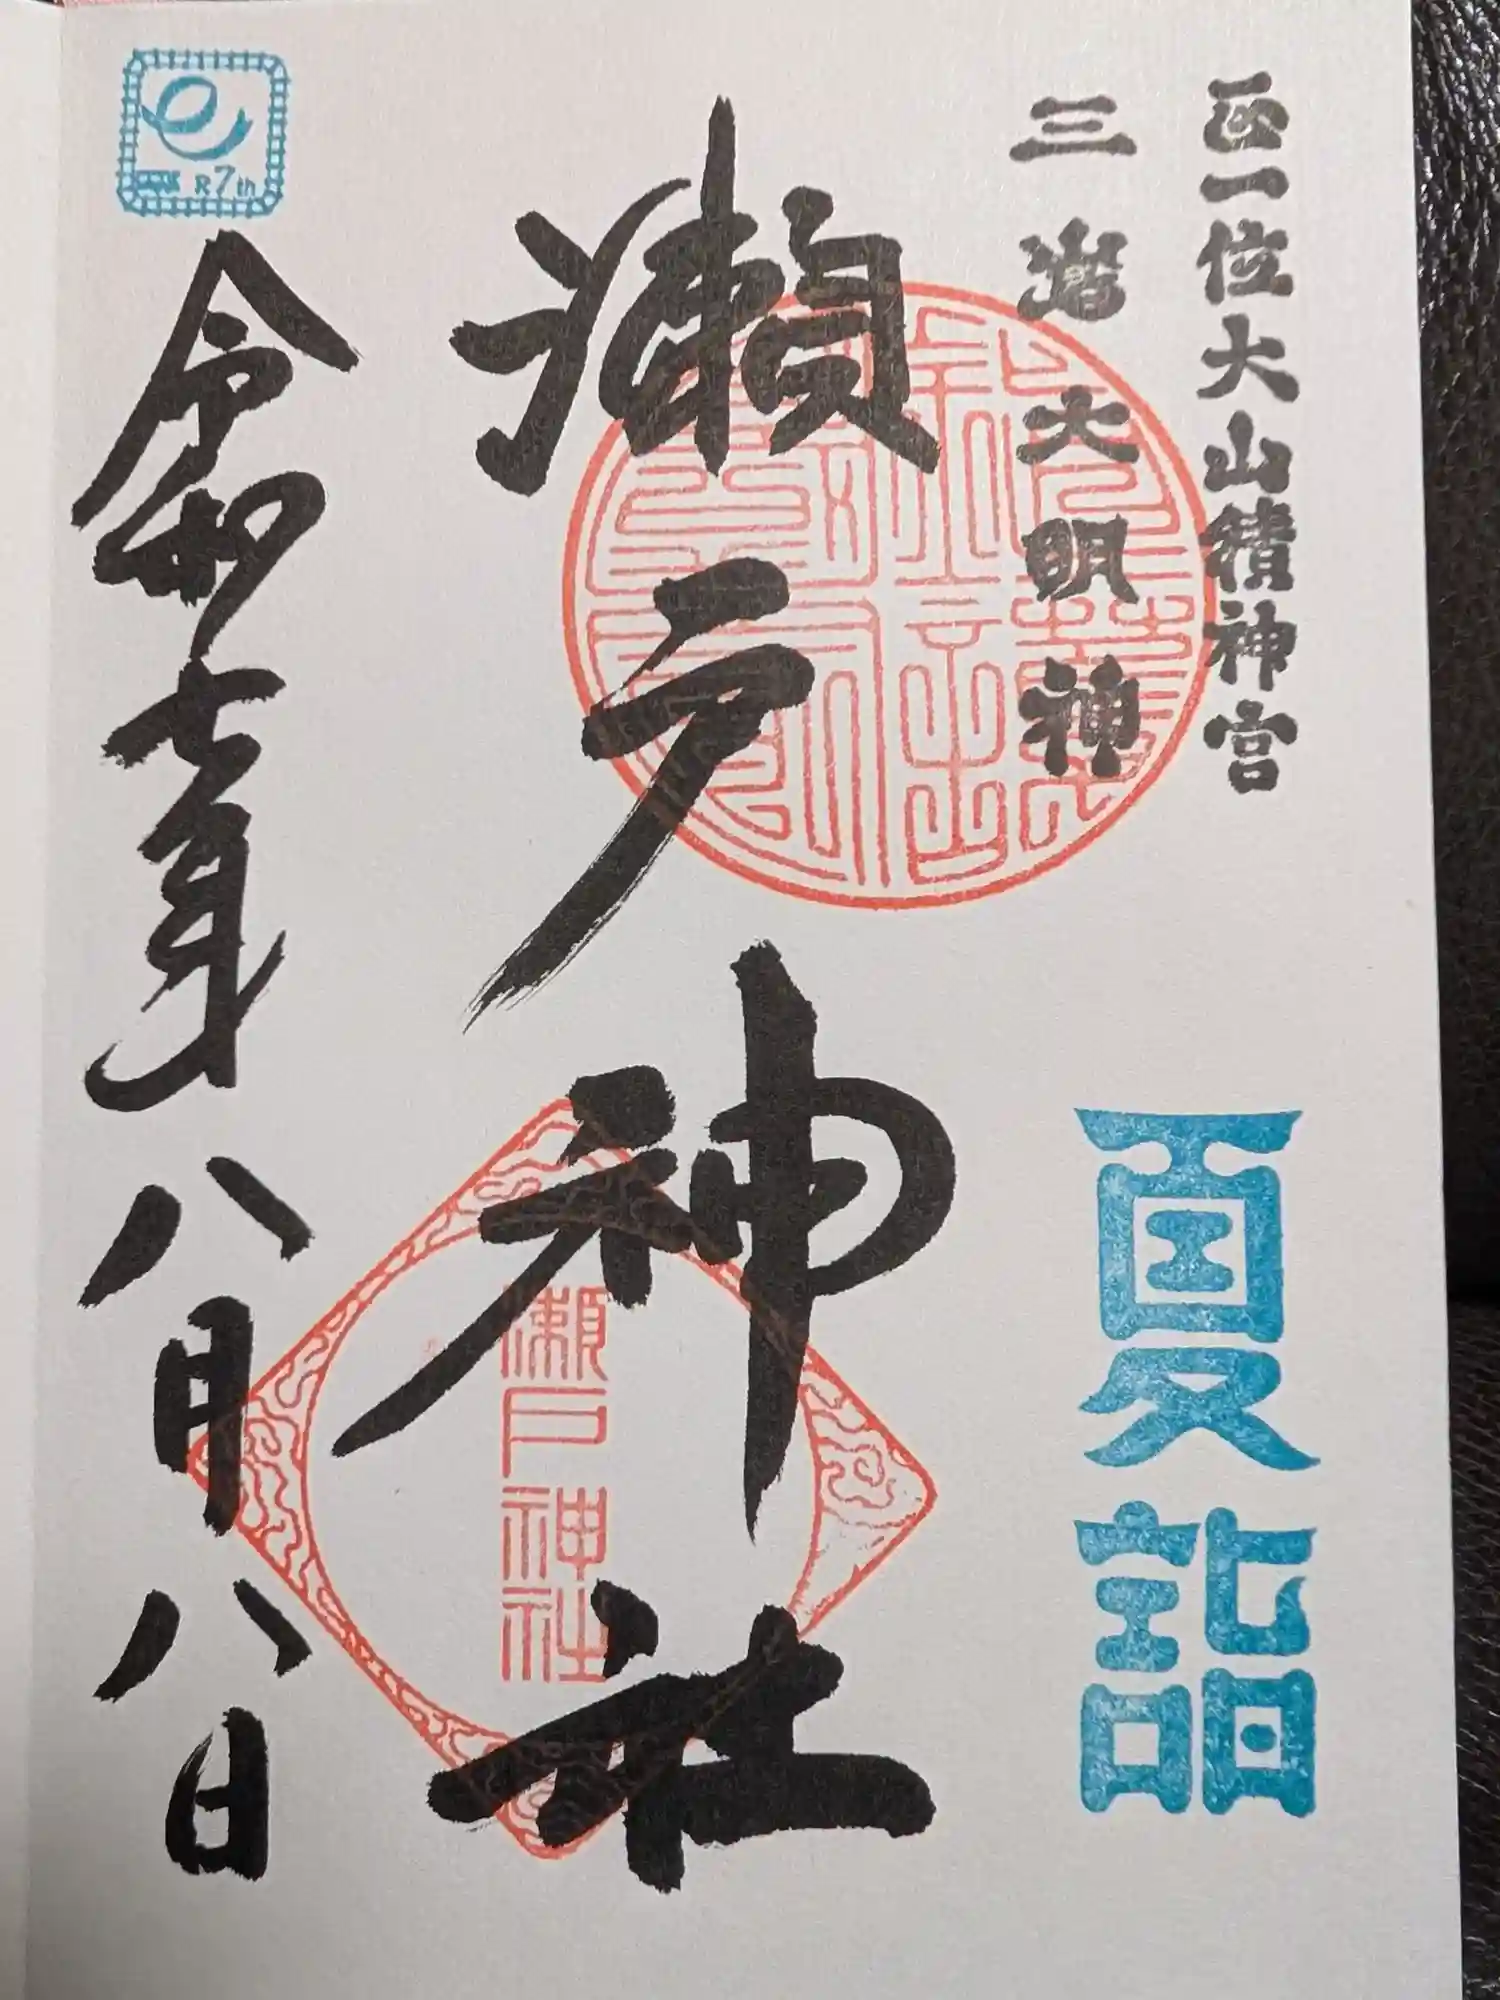 正一位大山積神宮
三嶌大明神
夏詣
瀬戸神社
瀬戸神社
令和七年八月八日
R7th